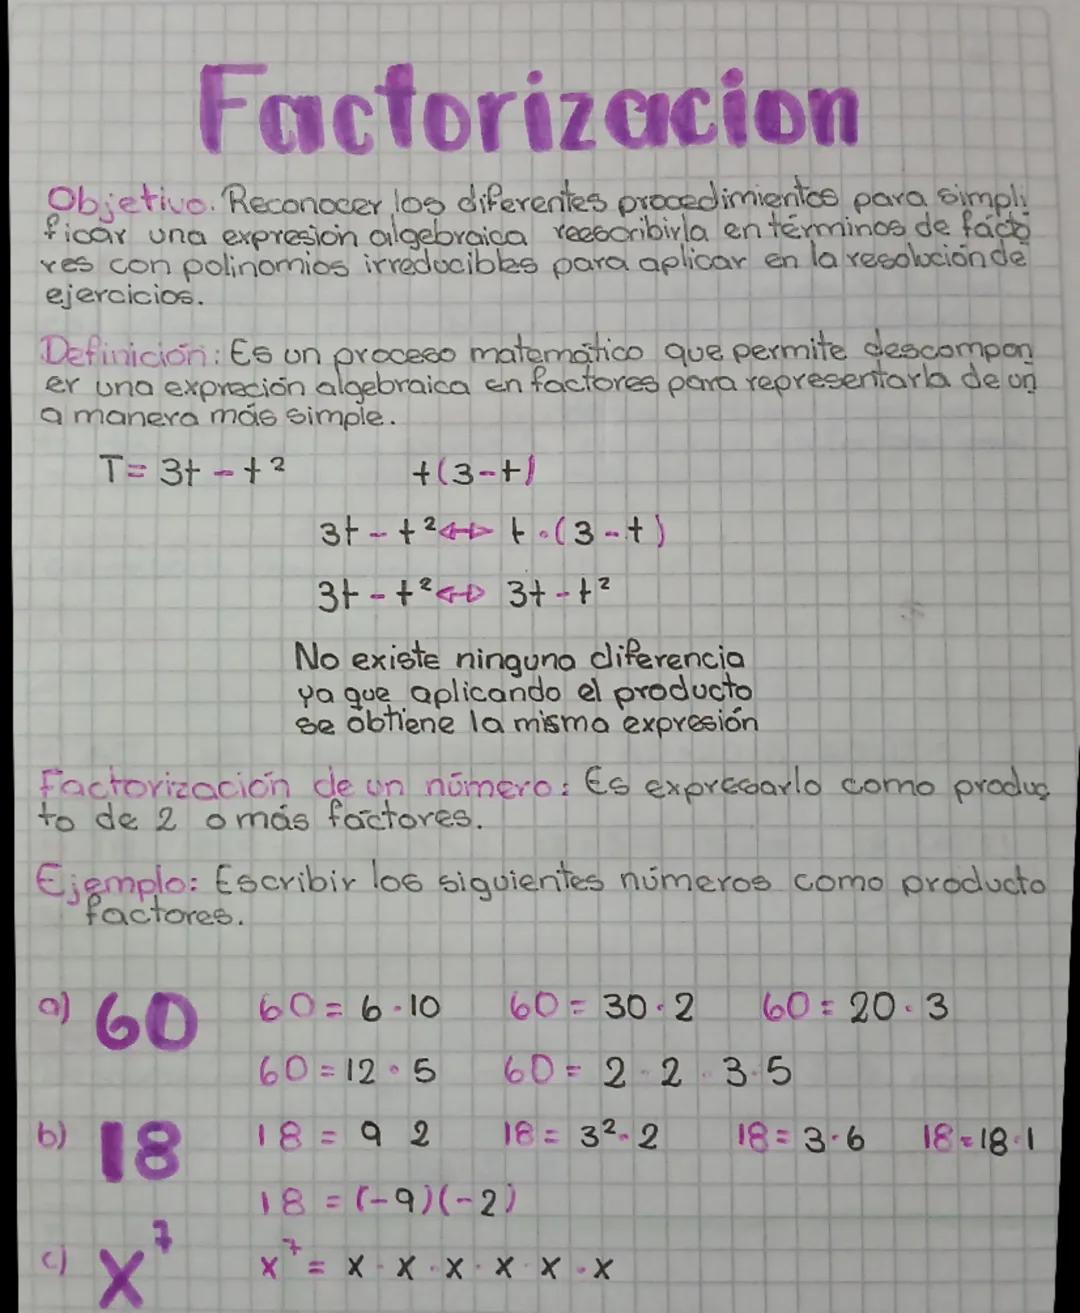 Factorizacion
Objetivo. Reconocer los diferentes procedimientos para simpli
ficar una expresión algebraica reescribirla en términos de facto
res con polinomios irreducibles para aplicar en la resolución de
ejercicios.
Definición: Es un proceso matemático que permite descompon
er una expreción algebraica en factores para representarla de un
a manera más simple.
T= 3t - t² t(3-t)
3t - t² ↔ t · (3 - t)
3t - t² ↔ 3t - t²
No existe ninguna diferencia
ya que aplicando el producto
se obtiene la misma expresión
Factorización de un número: Es expresarlo como produc
to de 2 o más factores.
Ejemplo: Escribir los siguientes números como producto
factores.
a) 60 60 = 6 · 10 60 = 30 · 2 60 = 20 · 3
60 = 12 · 5 60 = 2 · 2 · 3 · 5
b) 18 18 = 9 2 18 = 3² · 2 18 = 3 · 6 18 = 18 · 1
18 = (-9)(-2)
c) x⁷ x⁷ = x · x · x · x · x · x